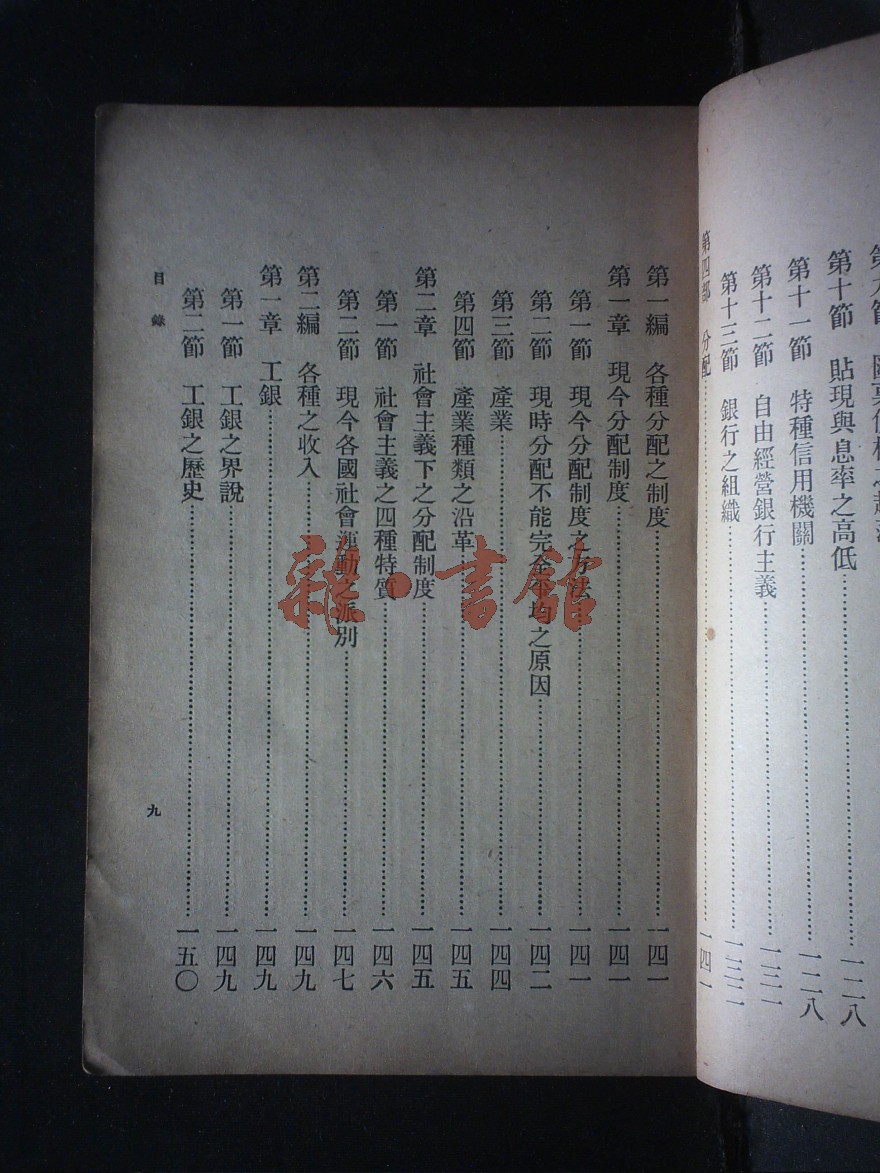 第十節 貼現與息率之高低……一二八
第十一節 特種信用機關……一二八
第十二節 自由經營銀行主義……一三一
第十三節 銀行之組織……一三二
第四部 分配……一四一
第一編 各種分配之制度……一四一
第一章 現今分配制度……一四一
第一節 現今分配制度之方法……一四一
第二節 現時分配不能完全平均之原因……一四二
第三節 產業……一四四
第四節 產業種類之沿革……一四五
第二章 社會主義下之分配制度……一四五
第一節 社會主義之四種特質……一四六
第二節 現今各國社會運動之派別……一四七
第二編 各種之收入……一四九
第一章 工銀……一四九
第一節 工銀之界說……一四九
第二節 工銀之歷史……一五〇
目錄
九
雜·書館